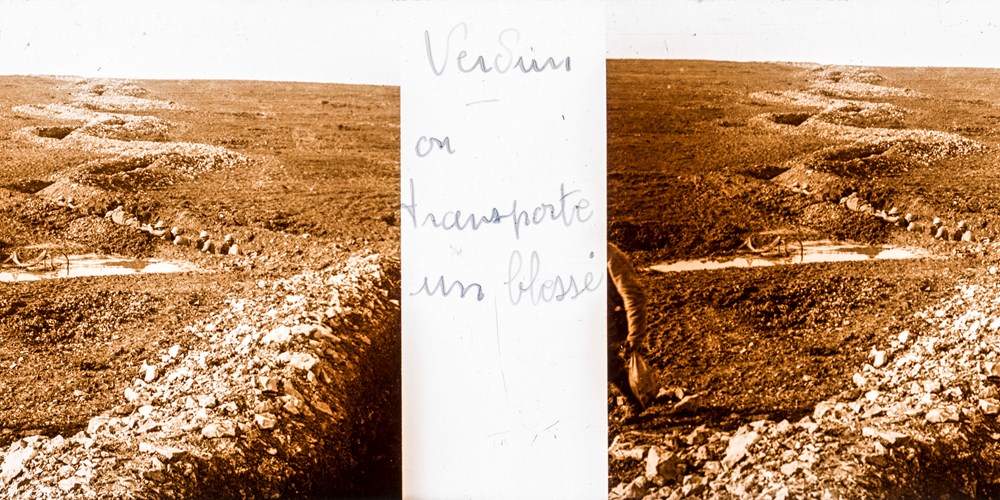 Verdun
on
transporte
un blossé